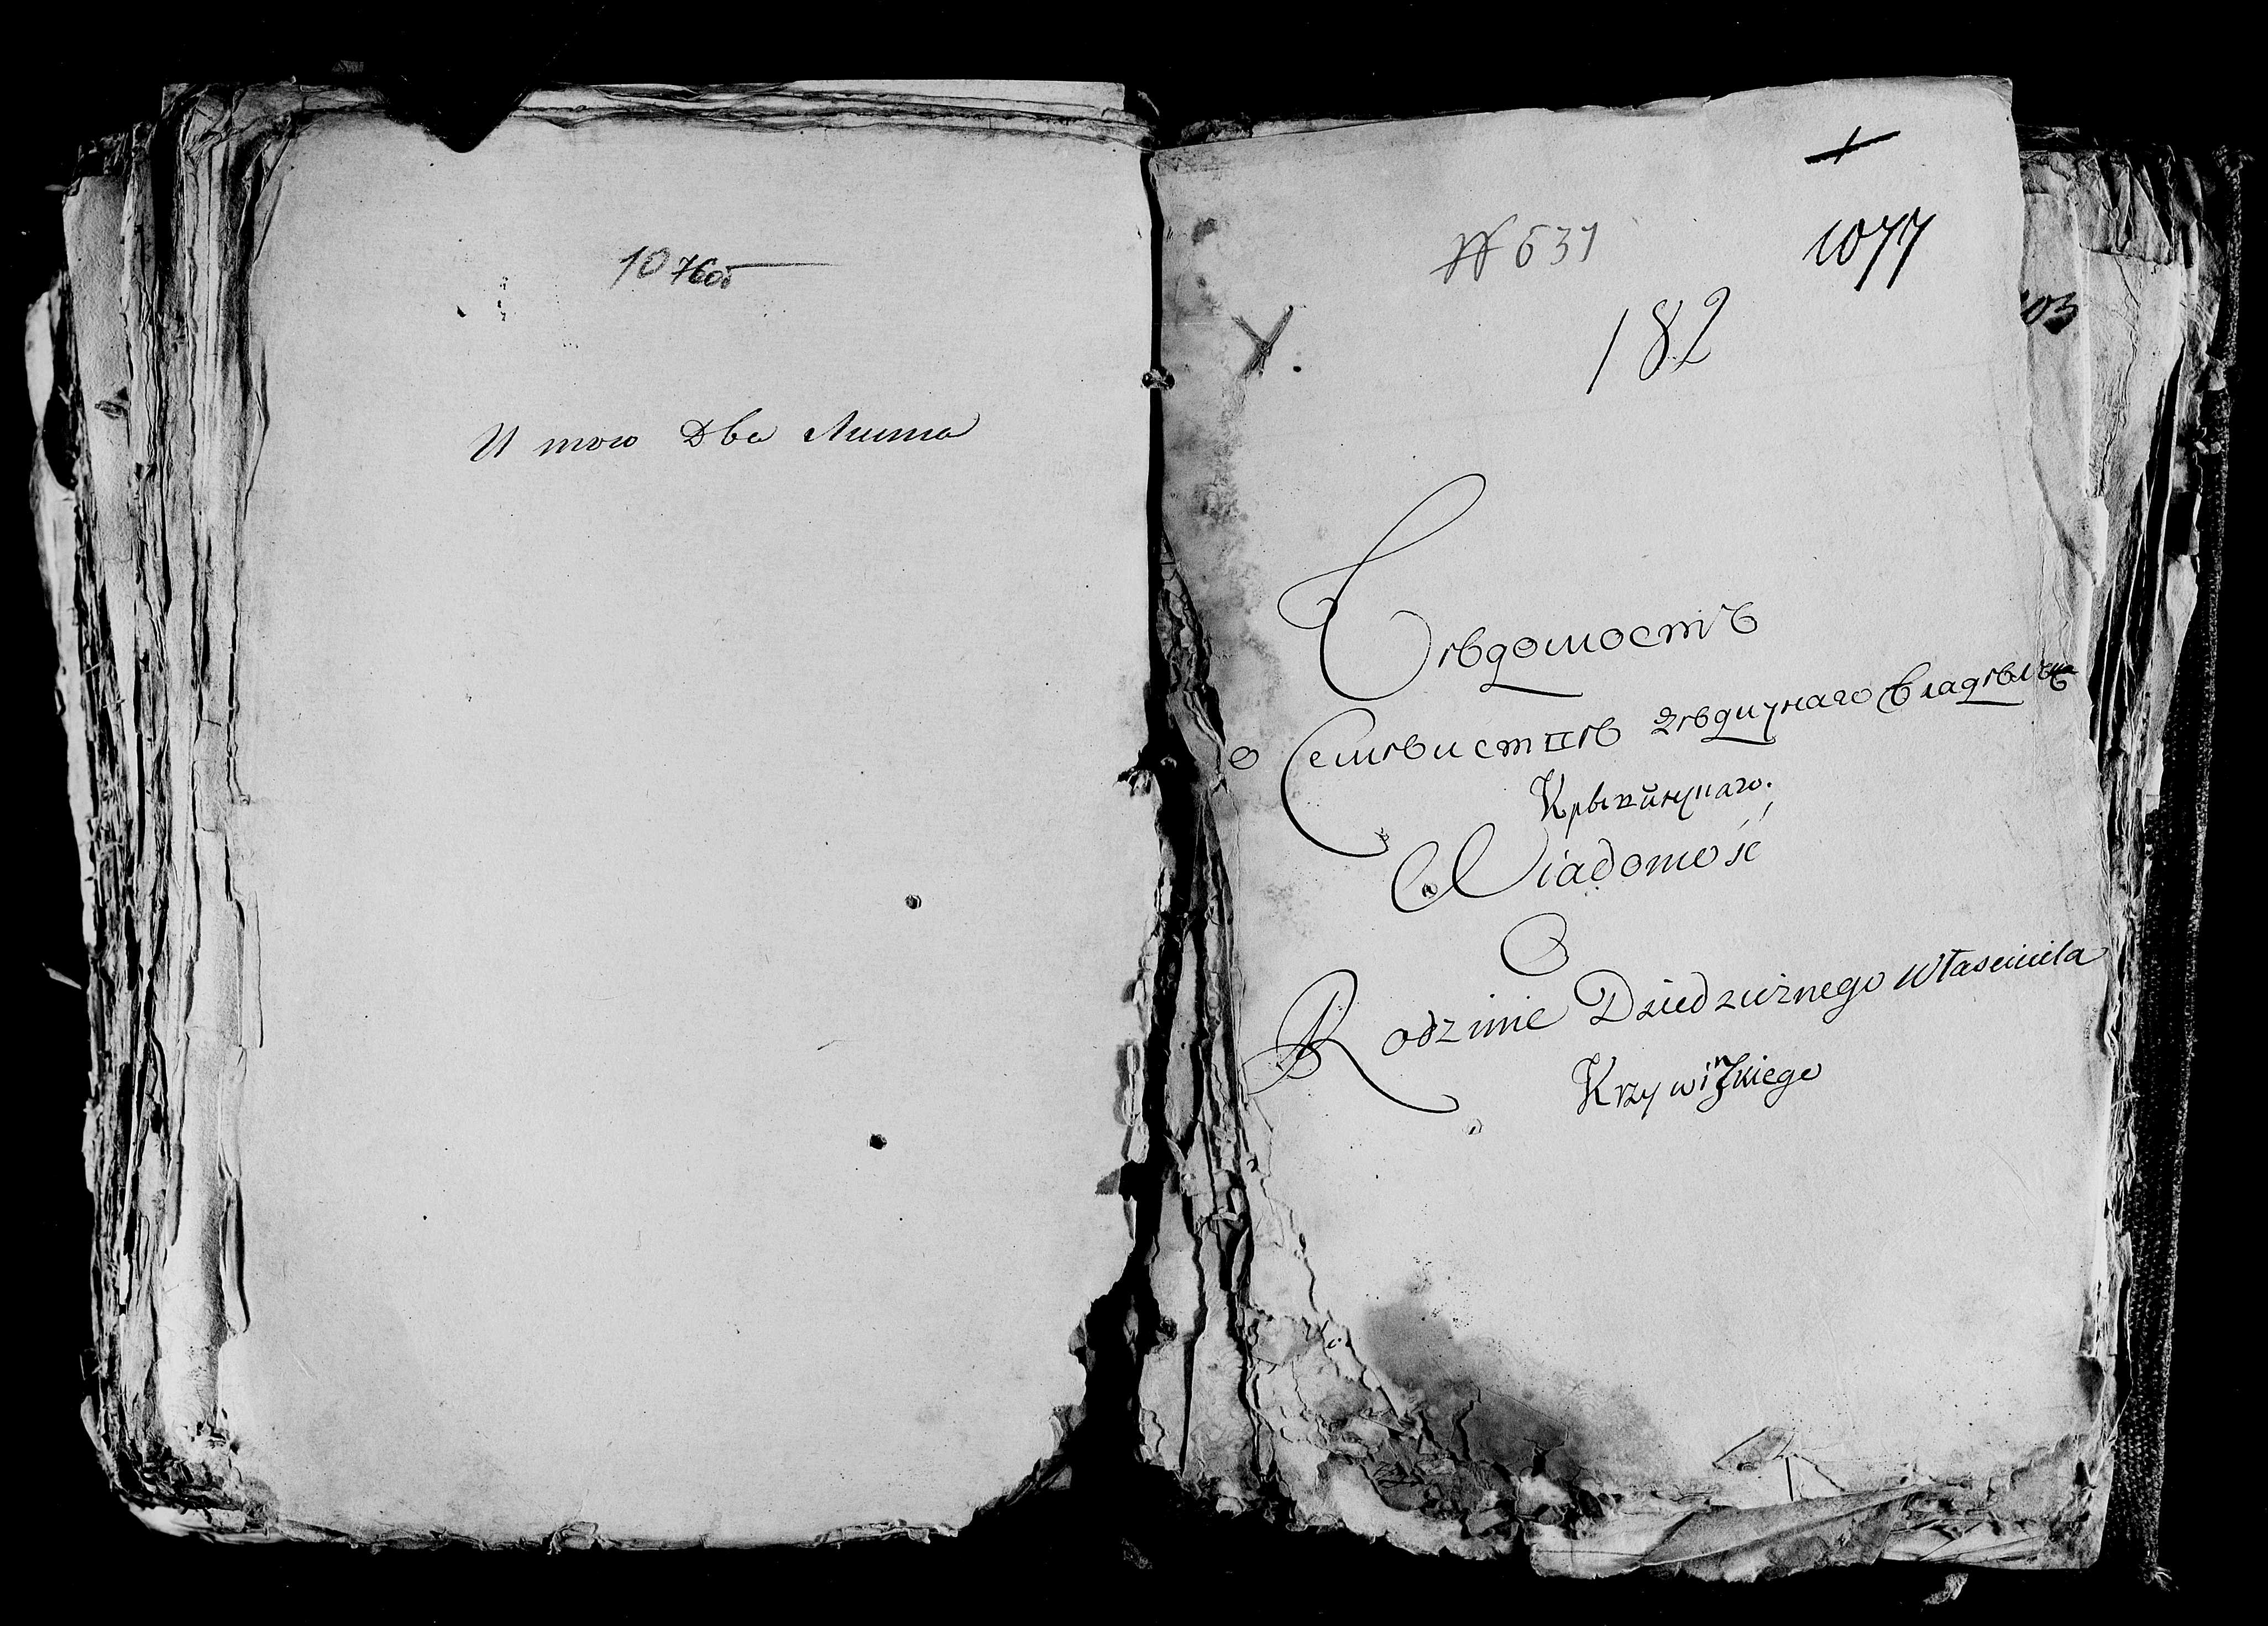 1076об
И того Два Листа
№ 631
1077
182
103
Вѣдомость
о Семѣистввѣ дѣдичнаго Владѣльца
Крывинскаго.
Wiadomość
O
Rodzinie Dziedzicznego Własciciela
Krzywinskiego